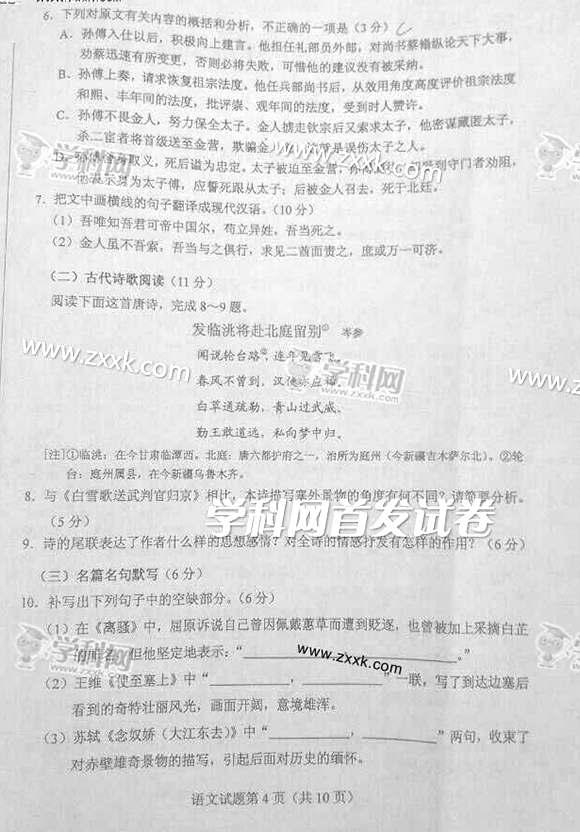 6. 下列对原文有关内容的概括和分析，不正确的一项是（3分）
A. 孙傅入仕以后，积极向上建言。他担任礼部员外郎，对尚书蔡翛纵论天下大事，
劝蔡迅速有所变更，否则必将失败，可惜他的建议没有被采纳。
B. 孙傅上奏，请求恢复祖宗法度。他任兵部尚书后，从效用角度高度评价祖宗法度
和熙、丰年间的法度，批评崇、观年间的法度，受到时人赞许。
C. 孙傅不畏金人，努力保全太子。金人掳走钦宗后又索求太子，他密谋藏匿太子，
杀二宦者将首级送至金营，欺骗金人 是误伤太子之人。
D. 孙傅舍身取义，死后谥为忠定。太子被迫至金营， 受到守门者劝阻，
他表示身为太子傅，应誓死跟从太子；后被金人召去，死于北廷。
7. 把文中画横线的句子翻译成现代汉语。（10分）
（1）吾唯知吾君可帝中国尔，苟立异姓，吾当死之。
（2）金人虽不吾索，吾当与之俱行，求见二酋面责之，庶或万一可济。
（二）古代诗歌阅读（11分）
阅读下面这首唐诗，完成8～9题。
发临洮将赴北庭留别① 岑参
闻说轮台路②，连年见雪飞。
春风不曾到，汉使亦应稀。
白草通疏勒，青山过武威。
勤王敢道远，私向梦中归。
[注]①临洮：在今甘肃临潭西。北庭：唐六都护府之一，治所为庭州（今新疆吉木萨尔北）。②轮
台：庭州属县，在今新疆乌鲁木齐。
8. 与《白雪歌送武判官归京》相比，本诗描写塞外景物的角度有何不同？请简要分析。
（5分）
9. 诗的尾联表达了作者什么样的思想感情？对全诗的情感抒发有怎样的作用？（6分）
（三）名篇名句默写（6分）
10. 补写出下列句子中的空缺部分。（6分）
（1）在《离骚》中，屈原诉说自己曾因佩戴蕙草而遭到贬逐，也曾被加上采摘白芷
的罪名，但他坚定地表示：“____________，____________。”
（2）王维《使至塞上》中“____________，____________”一联，写了到达边塞后
看到的奇特壮丽风光，画面开阔，意境雄浑。
（3）苏轼《念奴娇（大江东去）》中“____________，____________”两句，收束了
对赤壁雄奇景物的描写，引起后面对历史的缅怀。
语文试题第4页（共10页）
学科网
www.zxxk.com
www.zxxk.com
学科网
zxxk.com
www.zxxk.com
学科网首发试卷
学科网
www.zxxk.com